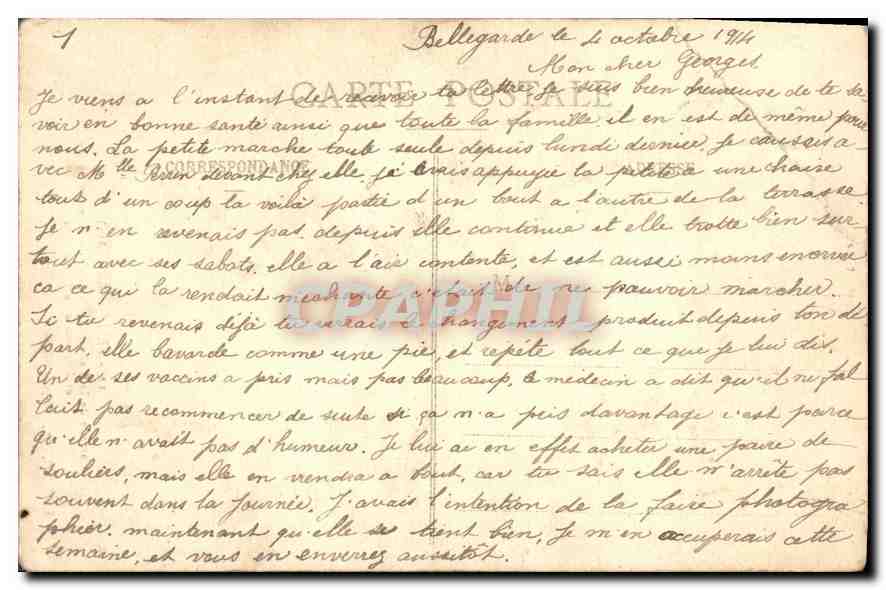 1
Bellegarde le 4 octobre 1914
Mon cher Georges
CARTE POSTALE
Je viens a l'instant de recevoir ta lettre je suis bien heureuse de te sa-
voir en bonne santé ainsi que toute la famille. il en est de même pour
nous. La petite marche toute seule depuis lundi dernier. Je causais a-
CORRESPONDANCE ADRESSE
vec Mlle Perrin devant chez elle, j'avais appuyée la petite a une chaise
tout d'un coup la voila partie d'un bout a l'autre de la terrasse.
Je n'en revenais pas. depuis elle continue et elle trotte bien sur-
tout avec ses sabots. elle a l'air contente, et est aussi moins enervée
ca ce qui la rendait mechante c'était de ne pouvoir marcher.
Si tu revenais déjà tu verrais le changement produit depuis ton dé
part, elle bavarde comme une pie, et repéte tout ce que je lui dis.
Un de ses vaccins a pris mais pas beaucoup, le médecin a dit qu'il ne fal
lait pas recommencer de suite si ça n'a pris davantage c'est parce
qu'elle n'avait pas d'humeur. Je lui ai en effet acheter une paire de
souliers, mais elle en viendra a bout, car tu sais elle n'arrête pas
souvent dans la journée. J'avais l'intention de la faire photogra
phier. maintenant qu'elle se tient bien, Je m'en occuperais cette
semaine, et vous en enverrez aussitôt.
CPAPHIL